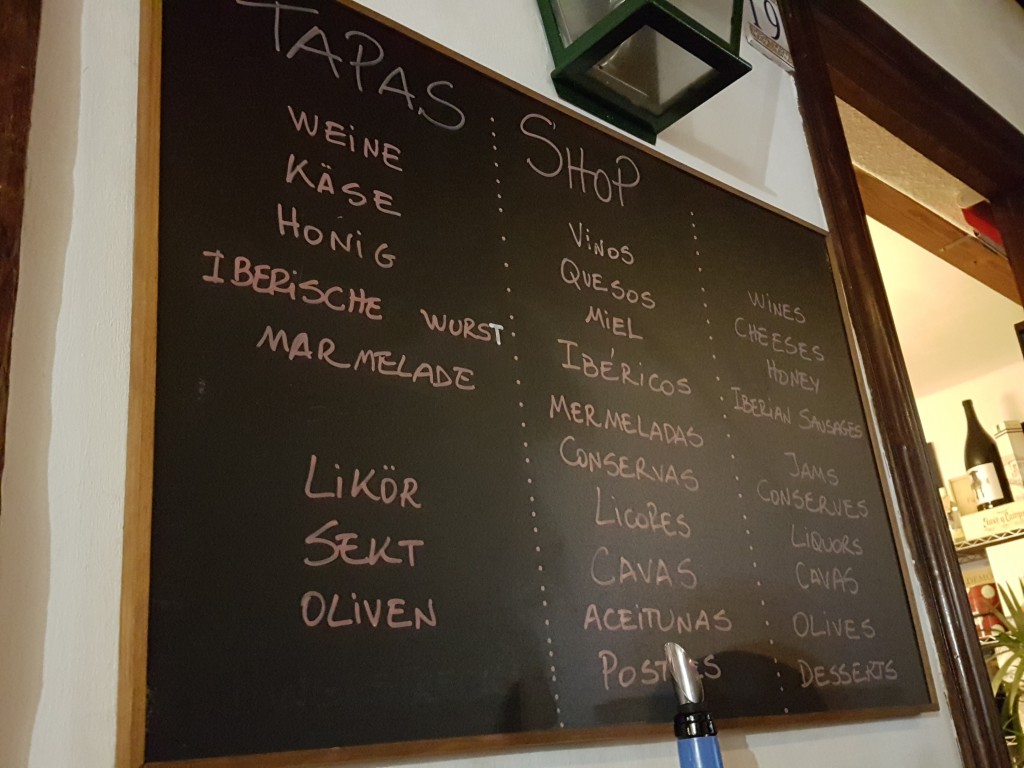 TAPAS SHOP
WEINE
KÄSE
HONIG
IBERISCHE WURST
MARMELADE
LIKÖR
SEKT
OLIVEN
VINOS
QUESOS
MIEL
IBÉRICOS
MERMELADAS
CONSERVAS
LICORES
CAVAS
ACEITUNAS
WINES
CHEESES
HONEY
IBERIAN SAUSAGES
JAMS
CONSERVES
LIQUORS
CAVAS
OLIVES
DESSERTS
19